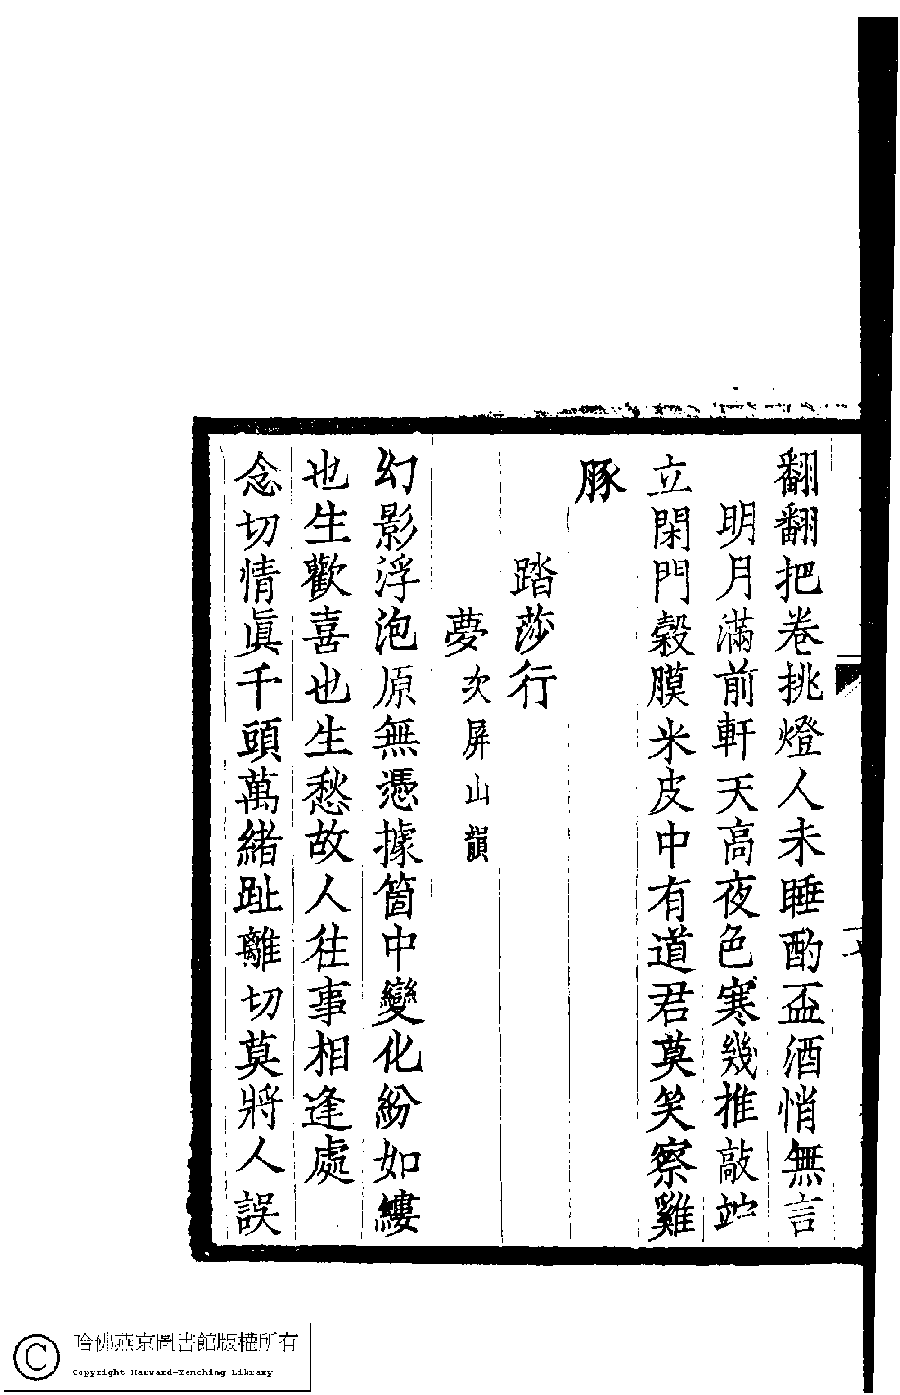 翻翻把卷挑燈人未睡酌盃酒悄無言
明月滿前軒天高夜色寒幾推敲竚
立閑門縠膜米皮中有道君莫笑察雞
豚
踏莎行
夢次屏山韻
幻影浮泡原無憑據箇中變化紛如縷
也生歡喜也生愁故人往事相逢處
念切情眞千頭萬緒趾離切莫將人誤
哈佛燕京圖書館版權所有
Copyright Harvard-Yenching Library